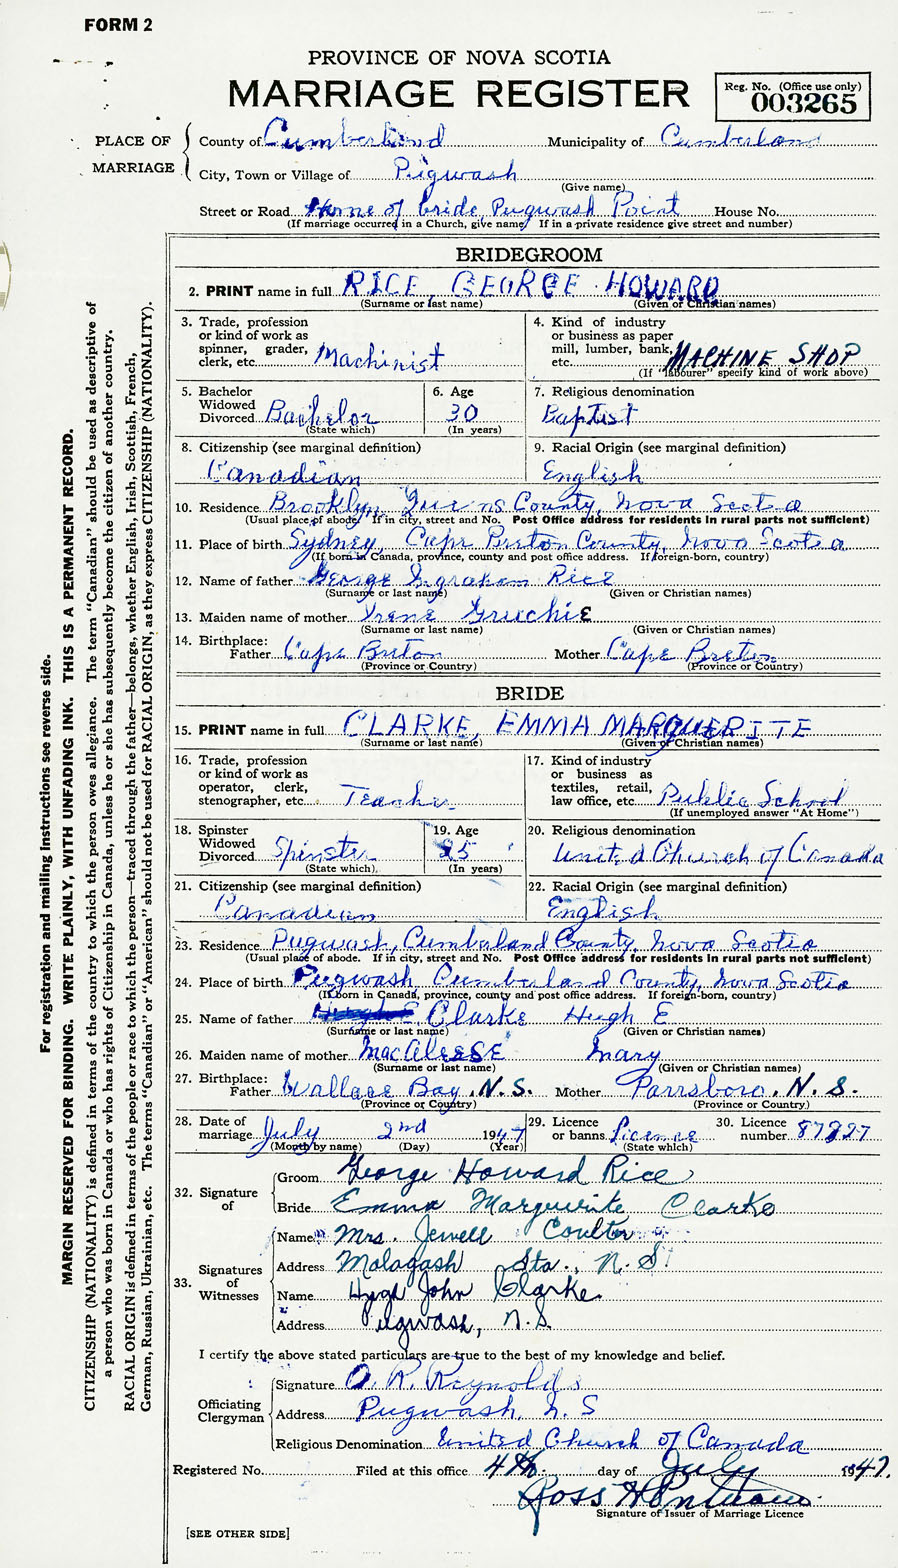 FORM 2
PROVINCE OF NOVA SCOTIA
MARRIAGE REGISTER
Reg. No. (Office use only)
003265
PLACE OF MARRIAGE
County of Cumberland Municipality of Cumberland
City, Town or Village of Pugwash
(Give name)
Street or Road Home of bride, Pugwash Point House No.
(If marriage occurred in a Church, give name. If in a private residence give street and number)
BRIDEGROOM
2. PRINT name in full RICE, GEORGE HOWARD
(Surname or last name) (Given or Christian names)
3. Trade, profession
or kind of work as
spinner, grader,
clerk, etc. Machinist
4. Kind of industry
or business as paper
mill, lumber, bank,
etc. MACHINE SHOP
(If "labourer" specify kind of work above)
5. Bachelor
Widowed
Divorced Bachelor
(State which)
6. Age
30
(In years)
7. Religious denomination
Baptist
8. Citizenship (see marginal definition)
Canadian
9. Racial Origin (see marginal definition)
English
10. Residence Brooklyn, Queens County, Nova Scotia
(Usual place of abode. If in city, street and No. Post Office address for residents in rural parts not sufficient)
11. Place of birth Sydney, Cape Breton County, Nova Scotia
(If born in Canada, province, county and post office address. If foreign-born, country)
12. Name of father George Ingraham Rice
(Surname or last name) (Given or Christian names)
13. Maiden name of mother Irene Gruchie
(Surname or last name) (Given or Christian names)
14. Birthplace:
Father Cape Breton Mother Cape Breton
(Province or Country) (Province or Country)
BRIDE
15. PRINT name in full CLARKE, EMMA MARGUERITE
(Surname or last name) (Given or Christian names)
16. Trade, profession
or kind of work as
operator, clerk,
stenographer, etc. Teacher
17. Kind of industry
or business as
textiles, retail,
law office, etc. Public School
(If unemployed answer "At Home")
18. Spinster
Widowed
Divorced Spinster
(State which)
19. Age
25
(In years)
20. Religious denomination
United Church of Canada
21. Citizenship (see marginal definition)
Canadian
22. Racial Origin (see marginal definition)
English
23. Residence Pugwash, Cumberland County, Nova Scotia
(Usual place of abode. If in city, street and No. Post Office address for residents in rural parts not sufficient)
24. Place of birth Pugwash, Cumberland County, Nova Scotia
(If born in Canada, province, county and post office address. If foreign-born, country)
25. Name of father Clarke Hugh E
(Surname or last name) (Given or Christian names)
26. Maiden name of mother MacAleese Mary
(Surname or last name) (Given or Christian names)
27. Birthplace:
Father Wallace Bay, N.S. Mother Parrsboro, N.S.
(Province or Country) (Province or Country)
28. Date of
marriage July 2nd 1947
(Month by name) (Day) (Year)
29. Licence
or banns Licence
(State which)
30. Licence
number 87827
32. Signature
of
Groom George Howard Rice
Bride Emma Marguerite Clarke
33. Signatures
of
Witnesses
Name Mrs. Jewell Coulter
Address Malagash Sta., N.S.
Name Hugh John Clarke
Address Pugwash, N.S.
I certify the above stated particulars are true to the best of my knowledge and belief.
Officiating
Clergyman
Signature O. R. Reynolds
Address Pugwash, N.S
Religious Denomination United Church of Canada
Registered No. Filed at this office 4th day of July 1947.
Ross
Signature of Issuer of Marriage Licence
[SEE OTHER SIDE]
For registration and mailing instructions see reverse side.
MARGIN RESERVED FOR BINDING. WRITE PLAINLY, WITH UNFADING INK. THIS IS A PERMANENT RECORD.
CITIZENSHIP (NATIONALITY) is defined in terms of the country to which the person owes allegiance. The term "Canadian" should be used as descriptive of
a person who was born in Canada or who has rights of Citizenship in Canada, unless he or she has subsequently become the citizen of another country.
RACIAL ORIGIN is defined in terms of the people or race to which the person—traced through the father—belongs, whether English, Irish, Scottish, French,
German, Russian, Ukrainian, etc. The terms "Canadian" or "American" should not be used for RACIAL ORIGIN, as they express CITIZENSHIP (NATIONALITY).